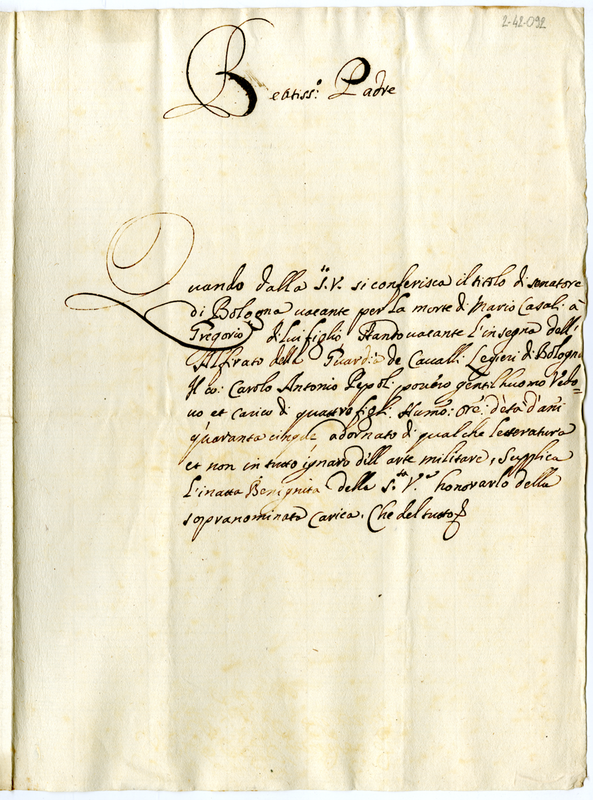 2-42-092
Beatiss.o Padre
Quando dalla S.tà V. si conferisca il titolo di senatore
di Bologna vacante per la morte di Mario Casali à
Gregorio di lui figlio stando vacante l'insegna dell'
Alfirato della Guardia de Cavall: Legieri di Bologna
Il Co: Carolo Antonio Pepoli povero gentilhuomo Vedo=
uo et carico di quattro figli: Humo: Ore: d'età d'ani
quaranta cinque adornato di qualche letteratura
et non in tutto ignaro dell arte militare, Supplica
L'inatta Benignità della S.tà V.a honorarlo della
sopranominata Carica. Che del tutto